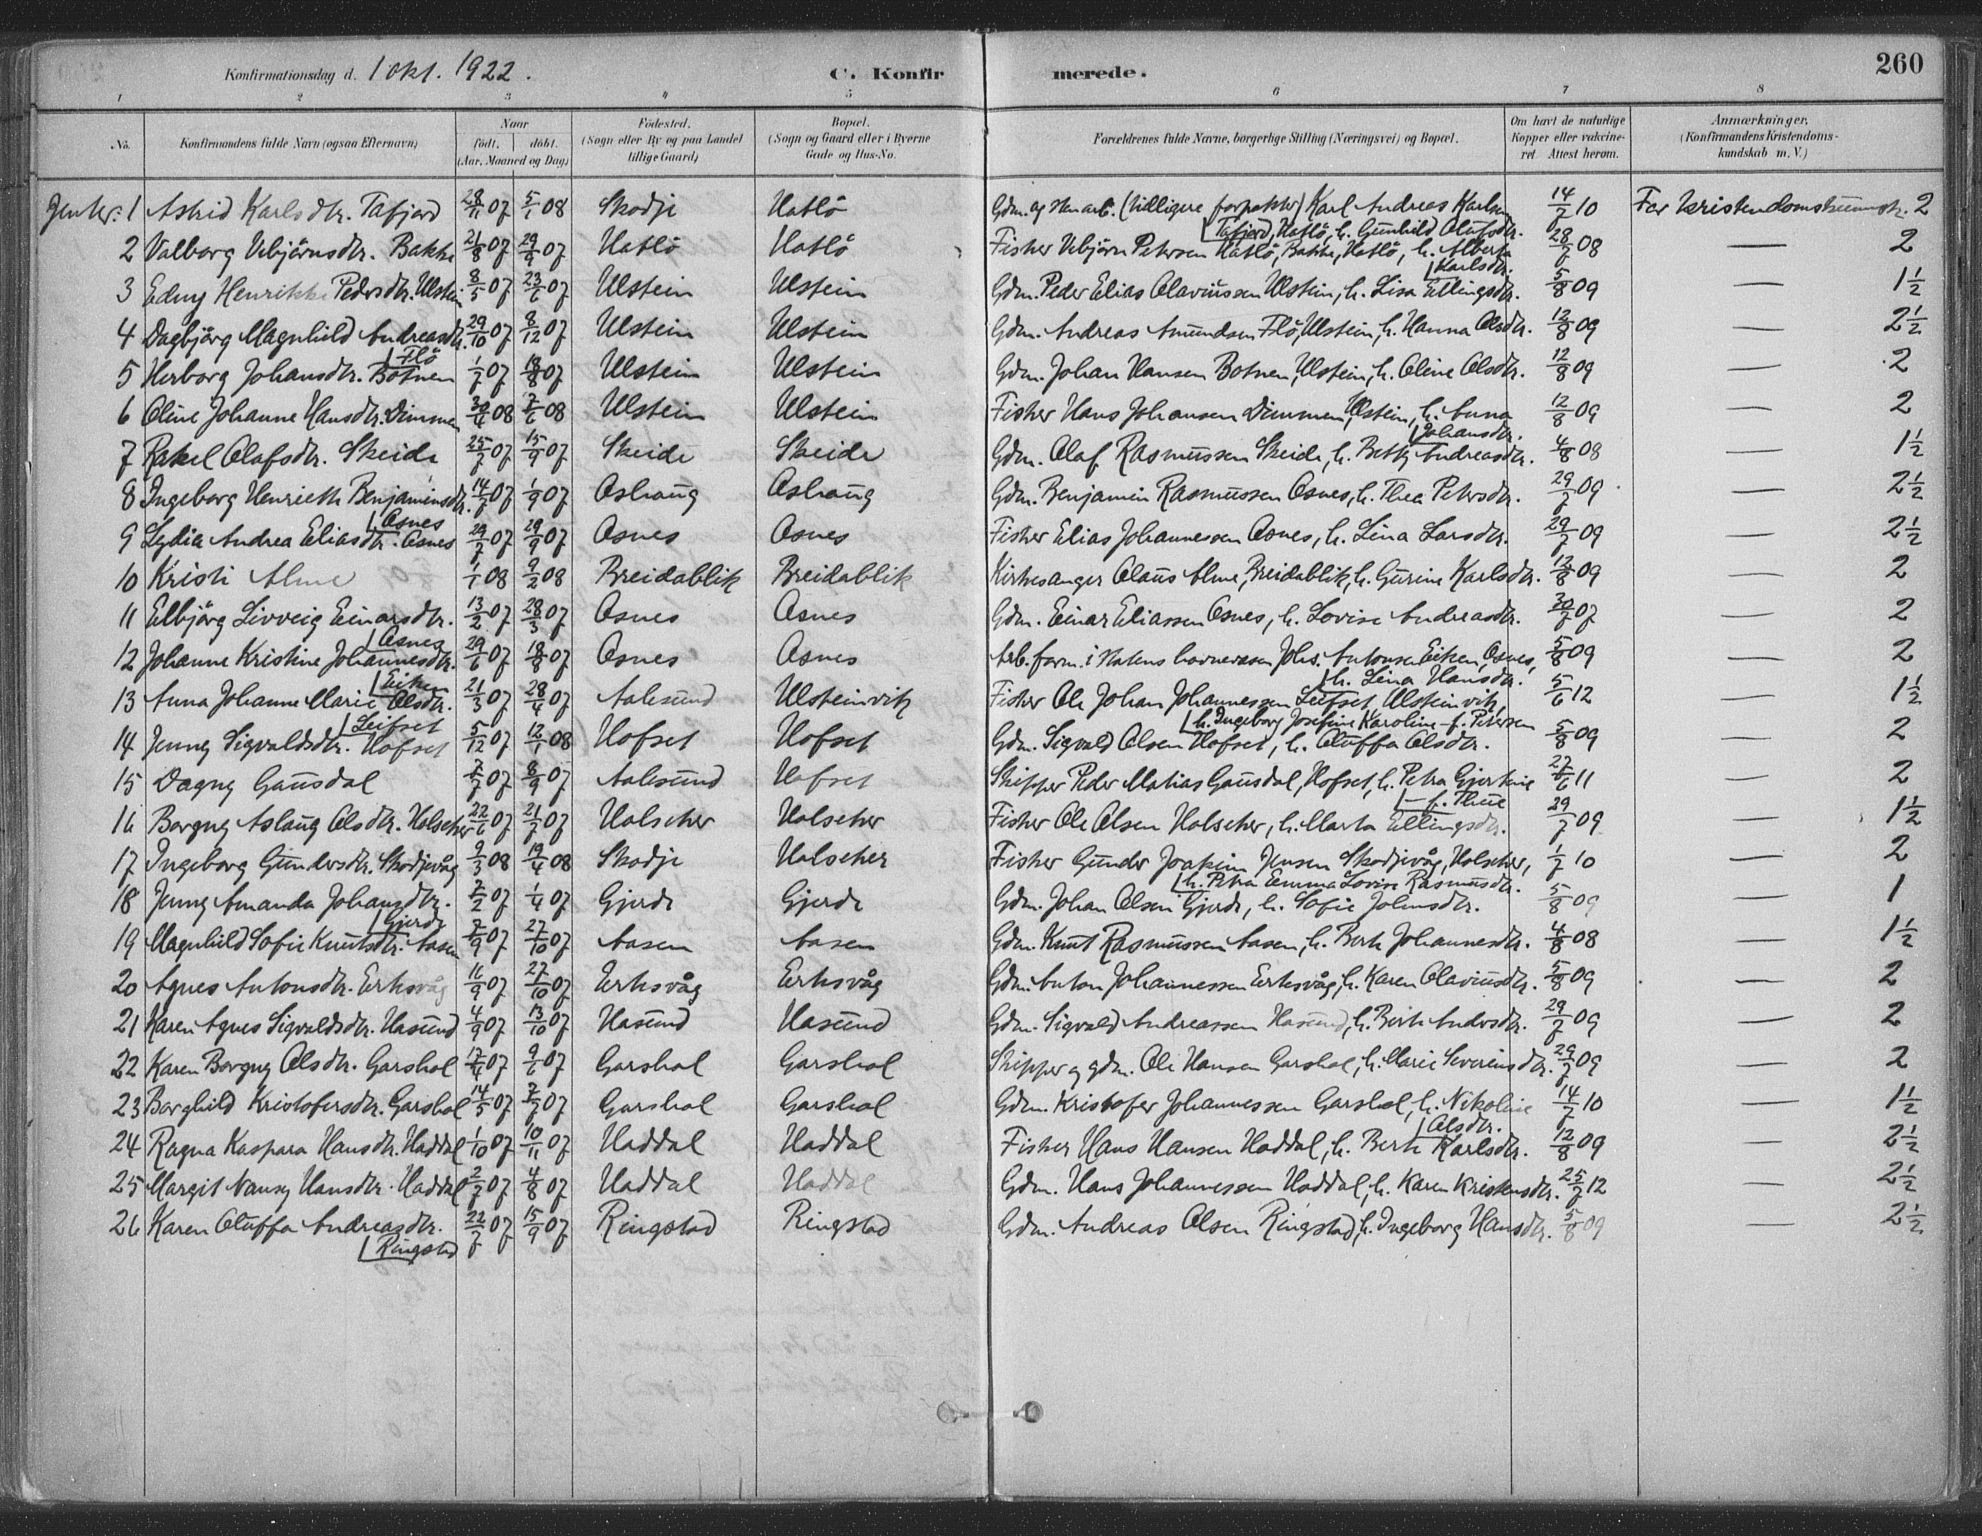 Konfirmationsdag d. 1 okt. 1922.
C. Konfirmerede.
260
1 2 3 4 5 6 7 8
No.
Konfirmandens fulde Navn (ogsaa Efternavn)
Naar
födt. döbt.
(Aar, Maaned og Dag)
Födested.
(Sogn eller By og paa Landet
tillige Gaard)
Bopæl.
(Sogn og Gaard eller i Byerne
Gade og Hus-No.
Forældrenes fulde Navne, borgerlige Stilling (Næringsvei) og Bopæl.
Om havt de naturlige
Kopper eller vakcine-
ret. Attest herom.
Anmærkninger.
(Konfirmandens Kristendoms-
kundskab m. V.)
Jenter: 1 Astrid Karlsdtr. Tafjord 28/11 07 5/1 08 Skodje Hatlö Gdm. og sten arb. (tidligere forpakter) Karl Andreas Karlsen 14/7 10 For kristendomskunnsk. 2
Tafjord, Hatlö, h. Gunhild Olufsdtr.
2 Valborg Vebjörnsdtr. Bakke 21/8 07 29/9 07 Hatlö Hatlö Fisker Vebjörn Petersen Hatlö, Bakke, Hatlö, h. Alberta 28/7 08 — 2
Karlsdtr.
3 Edny Henrikke Pedersdtr. Ulstein 8/5 07 23/6 07 Ulstein Ulstein Gdm. Peder Elias Olaviussen Ulstein, h. Lisa Ellingsdtr. 5/8 09 — 1½
4 Dagbjörg Magnhild Andreasdtr. 29/10 07 8/12 07 Ulstein Ulstein Gdm. Andreas Amundsen Flö, Ulstein, h. Hanna Olsdtr. 12/8 09 — 2½
Flö
5 Herborg Johansdtr. Botnen 1/7 07 18/8 07 Ulstein Ulstein Gdm. Johan Hansen Botnen, Ulstein, h. Oline Olsdtr. 12/8 09 — 2
6 Oline Johanne Hansdtr. Dimmen 30/4 08 7/6 08 Ulstein Ulstein Fisker Hans Johansen Dimmen, Ulstein, h. Anna 12/8 09 — 2
Johansdtr.
7 Rakel Olafsdtr. Skeide 25/7 07 15/9 07 Skeide Skeide Gdm. Olaf Rasmussen Skeide, h. Betty Andreasdtr. 4/8 08 — 1½
8 Ingeborg Henriette Benjaminsdtr. 14/7 07 1/9 07 Oshaug Oshaug Gdm. Benjamin Rasmussen Osnes, h. Thea Petersdtr. 29/7 09 — 2½
Osnes
9 Lydia Andrea Eliasdtr. Osnes 29/7 07 29/9 07 Osnes Osnes Fisker Elias Johannessen Osnes, h. Lina Larsdtr. 29/7 09 — 2½
10 Kristi Alme 1/1 08 9/2 08 Breidablik Breidablik Kirkesanger Olaus Alme, Breidablik, h. Gurine Karlsdtr. 12/8 09 — 2
11 Elbjörg Livveig Einarsdtr. 13/2 07 28/3 07 Osnes Osnes Gdm. Einar Eliassen Osnes, h. Lovise Andreasdtr. 30/7 07 — 2
Osnes
12 Johanne Kristine Johannesdtr. 29/6 07 18/8 07 Osnes Osnes Arb.form. i Statens havnevæsen Johs. Antonsen Eiken, Osnes, 5/8 09 — 2
Eiken h. Lina Hansdtr.
13 Anna Johanne Marie Olsdtr. 21/3 07 28/4 07 Aalesund Ulsteinvik Fisker Ole Johan Johannessen Leifset, Ulsteinvik, 5/6 12 — 1½
Leifset h. Ingeborg Josefine Karoline f. Petersen
14 Jenny Sigvaldsdtr. Hofset 5/12 07 12/1 08 Hofset Hofset Gdm. Sigvald Olsen Hofset, h. Oluffa Olsdtr. 5/8 09 — 2
15 Dagny Gausdal 7/7 07 8/9 07 Aalesund Hofset Skipper Peder Matias Gausdal, Hofset, h. Petra Gjertine 27/6 11 — 2
f. Thue
16 Borgny Aslaug Olsdtr. Holseker 22/6 07 21/7 07 Holseker Holseker Fisker Ole Olsen Holseker, h. Marta Ellingsdtr. 29/7 09 — 1½
17 Ingeborg Gundersdtr. Skodjevåg 9/3 08 19/4 08 Skodje Holseker Fisker Gunder Joakim Jensen Skodjevåg, Holseker, 1/7 10 — 2
h. Petra Emma Lovise Rasmusdtr.
18 Jenny Amanda Johansdtr. 7/2 07 1/4 07 Gjerde Gjerde Gdm. Johan Olsen Gjerde, h. Sofie Johnsdtr. 5/8 09 — 1
Gjerde
19 Magnhild Sofie Knutsdtr. Aasen 7/9 07 27/10 07 Aasen Aasen Gdm. Knut Rasmussen Aasen, h. Berte Johannesdtr. 4/8 08 — 1½
20 Agnes Antonsdtr. Eiksvåg 11/9 07 27/10 07 Eiksvåg Eiksvåg Gdm. Anton Johannessen Eiksvåg, h. Karen Olaviusdtr. 5/8 09 — 2
21 Karen Agnes Sigvaldsdtr. Hasund 4/9 07 13/10 07 Hasund Hasund Gdm. Sigvald Andreassen Hasund, h. Berte Andersdtr. 29/7 09 — 2
22 Karen Borgny Olsdtr. Garshol 17/4 07 9/6 07 Garshol Garshol Skipper og gdm. Ole Hansen Garshol, h. Marie Severinsdtr. 29/7 09 — 2
23 Borghild Kristofersdtr. Garshol 14/5 07 7/7 07 Garshol Garshol Gdm. Kristofer Johannessen Garshol, h. Nikoline 14/7 10 — 1½
Olsdtr.
24 Ragna Kaspara Hansdtr. Haddal 1/10 07 10/11 07 Haddal Haddal Fisker Hans Hansen Haddal, h. Berte Karlsdtr. 12/8 09 — 2½
25 Margit Nansy Hansdtr. Haddal 2/7 07 4/8 07 Haddal Haddal Gdm. Hans Johannessen Haddal, h. Karen Kristensdtr. 25/7 12 — 2½
26 Karen Oluffa Andreasdtr. 22/7 07 15/9 07 Ringstad Ringstad Gdm. Andreas Olsen Ringstad, h. Ingeborg Hansdtr. 5/8 09 — 2½
Ringstad